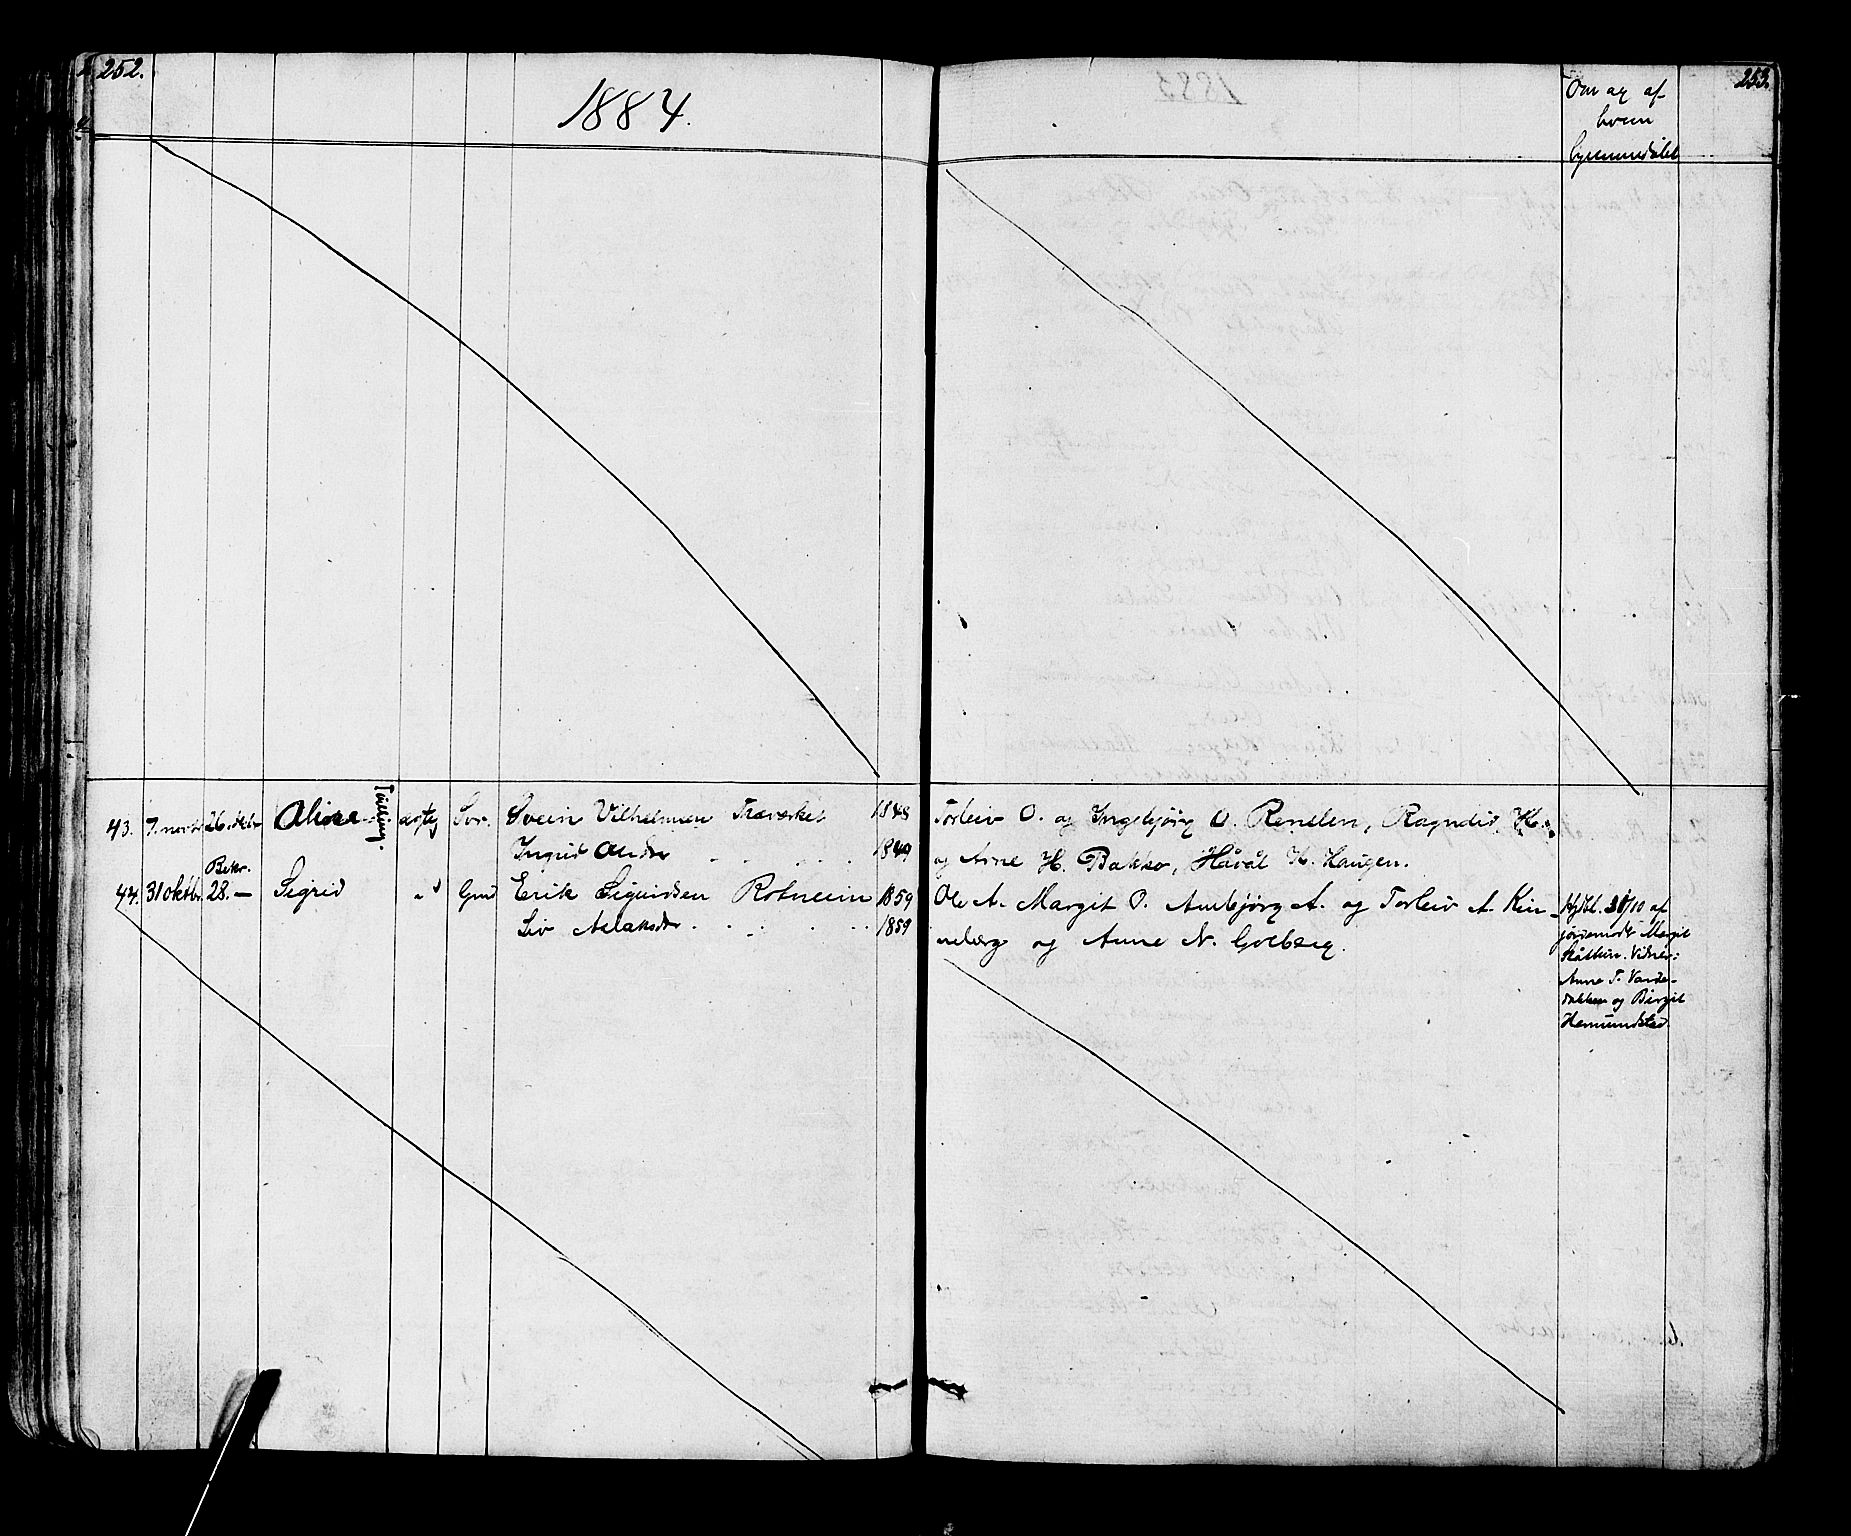 252.
1884.
253.
Om og af
hvem
hjemmedøbt
43. 7. novbr 26. oktbr Oline Tvilling. ægte Svein Vilhelmsen 1848
Ingrid Olsdr . . . . 1849
Torleiv O. og Ingebjørg O. Renelen, Ragndid H.
og Arne H. Bakko, Håvål H. Haugen.
Bekr.
44. 31 oktbr. 28. — Sigrid " Gmd Erik Sigurdsen Rotneim 1859
Liv Aslaksdr . . . . 1859
Ole A. Margit O. Ambjørg A. og Torleiv A. Kin-
neberg og Anne N. Golberg.
Hjdbt. 31/10 af
jordemodr Margit
Vidner:
Anne T. Varde-
bakken og Birgit
Hemundstad.